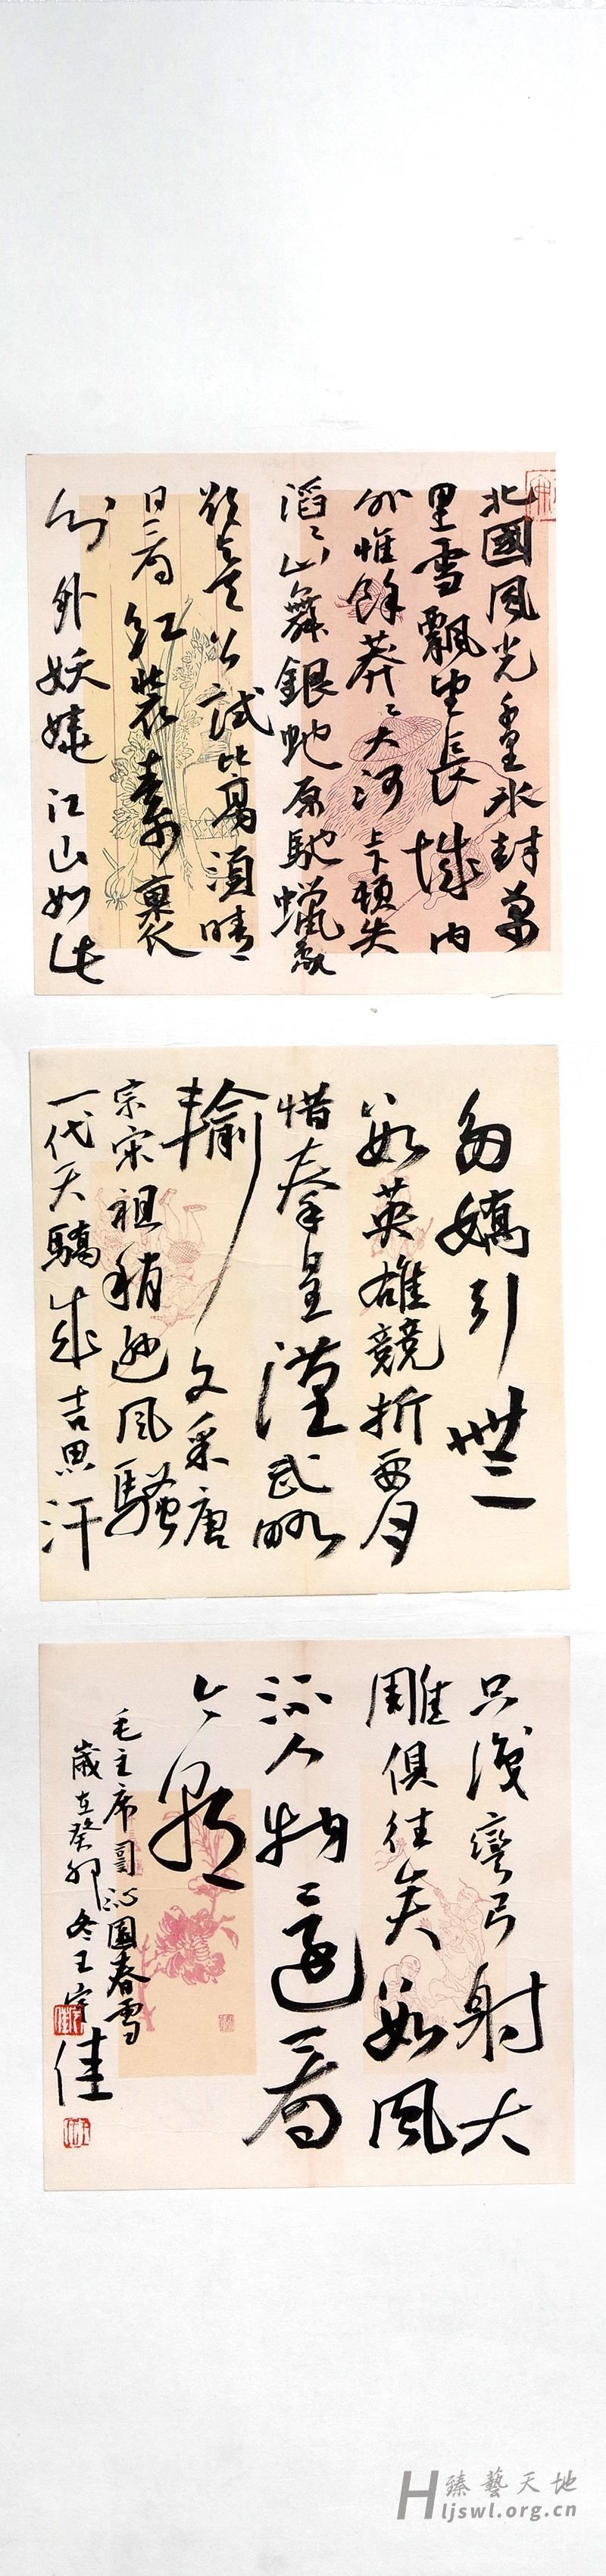 北國風光千里冰封萬
里雪飄望長城內
外惟餘莽々大河上下頓失
滔々山舞銀蛇原馳蠟象
欲與天公試比高須晴
日看紅裝素裹
分外妖嬈江山如此
多嬌引無
數英雄競折腰
惜秦皇漢武略
輸文采唐
宗宋祖稍遜風騷
一代天驕成吉思汗
只識彎弓射大
雕俱往矣數風
流人物還看
今朝
毛主席詞沁園春雪
歲在癸卯冬王宇佳
臻藝天地
Hljswl.org.cn